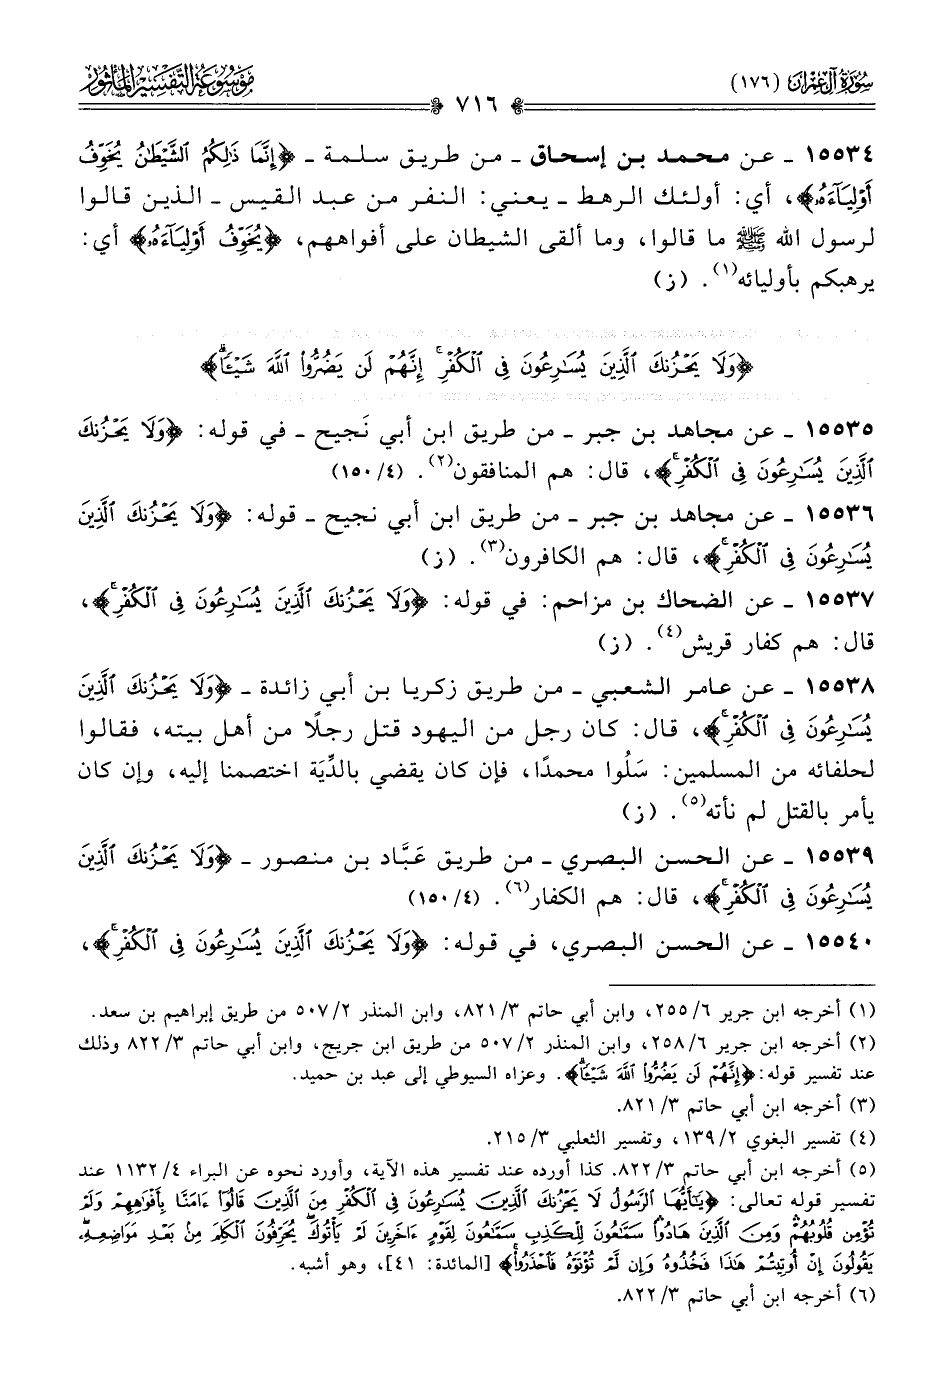 سُورَةُ آلِ عِمْرَان (١٧٦)
مَوْسُوعَةُ التَّفْسِيرِ المَأْثُورِ
٧١٦
١٥٥٣٤ ـ عن محمد بن إسحاق ـ من طريق سلمة ـ ﴿إِنَّمَا ذَٰلِكُمُ ٱلشَّيْطَٰنُ يُخَوِّفُ
أَوْلِيَآءَهُۥ﴾، أي: أولئك الرهط ـ يعني: النفر من عبد القيس ـ الذين قالوا
لرسول الله ﷺ ما قالوا، وما ألقى الشيطان على أفواههم، ﴿يُخَوِّفُ أَوْلِيَآءَهُۥ﴾ أي:
يرهبكم بأوليائه(١). (ز)
﴿وَلَا يَحْزُنكَ ٱلَّذِينَ يُسَٰرِعُونَ فِى ٱلْكُفْرِ ۚ إِنَّهُمْ لَن يَضُرُّوا۟ ٱللَّهَ شَيْـًٔا ۗ﴾
١٥٥٣٥ ـ عن مجاهد بن جبر ـ من طريق ابن أبي نَجيح ـ في قوله: ﴿وَلَا يَحْزُنكَ
ٱلَّذِينَ يُسَٰرِعُونَ فِى ٱلْكُفْرِ ۚ﴾، قال: هم المنافقون(٢). (٤/١٥٠)
١٥٥٣٦ ـ عن مجاهد بن جبر ـ من طريق ابن أبي نجيح ـ قوله: ﴿وَلَا يَحْزُنكَ ٱلَّذِينَ
يُسَٰرِعُونَ فِى ٱلْكُفْرِ ۚ﴾، قال: هم الكافرون(٣). (ز)
١٥٥٣٧ ـ عن الضحاك بن مزاحم: في قوله: ﴿وَلَا يَحْزُنكَ ٱلَّذِينَ يُسَٰرِعُونَ فِى ٱلْكُفْرِ ۚ﴾،
قال: هم كفار قريش(٤). (ز)
١٥٥٣٨ ـ عن عامر الشعبي ـ من طريق زكريا بن أبي زائدة ـ ﴿وَلَا يَحْزُنكَ ٱلَّذِينَ
يُسَٰرِعُونَ فِى ٱلْكُفْرِ ۚ﴾، قال: كان رجل من اليهود قتل رجلًا من أهل بيته، فقالوا
لحلفائه من المسلمين: سَلُوا محمدًا، فإن كان يقضي بالدِّيَة اختصمنا إليه، وإن كان
يأمر بالقتل لم نأته(٥). (ز)
١٥٥٣٩ ـ عن الحسن البصري ـ من طريق عَبَّاد بن منصور ـ ﴿وَلَا يَحْزُنكَ ٱلَّذِينَ
يُسَٰرِعُونَ فِى ٱلْكُفْرِ ۚ﴾، قال: هم الكفار(٦). (٤/١٥٠)
١٥٥٤٠ ـ عن الحسن البصري، في قوله: ﴿وَلَا يَحْزُنكَ ٱلَّذِينَ يُسَٰرِعُونَ فِى ٱلْكُفْرِ ۚ﴾،
(١) أخرجه ابن جرير ٦/٢٥٥، وابن أبي حاتم ٣/٨٢١، وابن المنذر ٢/٥٠٧ من طريق إبراهيم بن سعد.
(٢) أخرجه ابن جرير ٦/٢٥٨، وابن المنذر ٢/٥٠٧ من طريق ابن جريج، وابن أبي حاتم ٣/٨٢٢ وذلك
عند تفسير قوله: ﴿إِنَّهُمْ لَن يَضُرُّوا۟ ٱللَّهَ شَيْـًٔا ۗ﴾. وعزاه السيوطي إلى عبد بن حميد.
(٣) أخرجه ابن أبي حاتم ٣/٨٢١.
(٤) تفسير البغوي ٢/١٣٩، وتفسير الثعلبي ٣/٢١٥.
(٥) أخرجه ابن أبي حاتم ٣/٨٢٢. كذا أورده عند تفسير هذه الآية، وأورد نحوه عن البراء ٤/١١٣٢ عند
تفسير قوله تعالى: ﴿يَٰٓأَيُّهَا ٱلرَّسُولُ لَا يَحْزُنكَ ٱلَّذِينَ يُسَٰرِعُونَ فِى ٱلْكُفْرِ مِنَ ٱلَّذِينَ قَالُوٓا۟ ءَامَنَّا بِأَفْوَٰهِهِمْ وَلَمْ
تُؤْمِن قُلُوبُهُمْ ۛ وَمِنَ ٱلَّذِينَ هَادُوا۟ ۛ سَمَّٰعُونَ لِلْكَذِبِ سَمَّٰعُونَ لِقَوْمٍ ءَاخَرِينَ لَمْ يَأْتُوكَ ۖ يُحَرِّفُونَ ٱلْكَلِمَ مِنۢ بَعْدِ مَوَاضِعِهِۦ ۖ
يَقُولُونَ إِنْ أُوتِيتُمْ هَٰذَا فَخُذُوهُ وَإِن لَّمْ تُؤْتَوْهُ فَٱحْذَرُوا۟ ۚ﴾ [المائدة: ٤١]، وهو أشبه.
(٦) أخرجه ابن أبي حاتم ٣/٨٢٢.